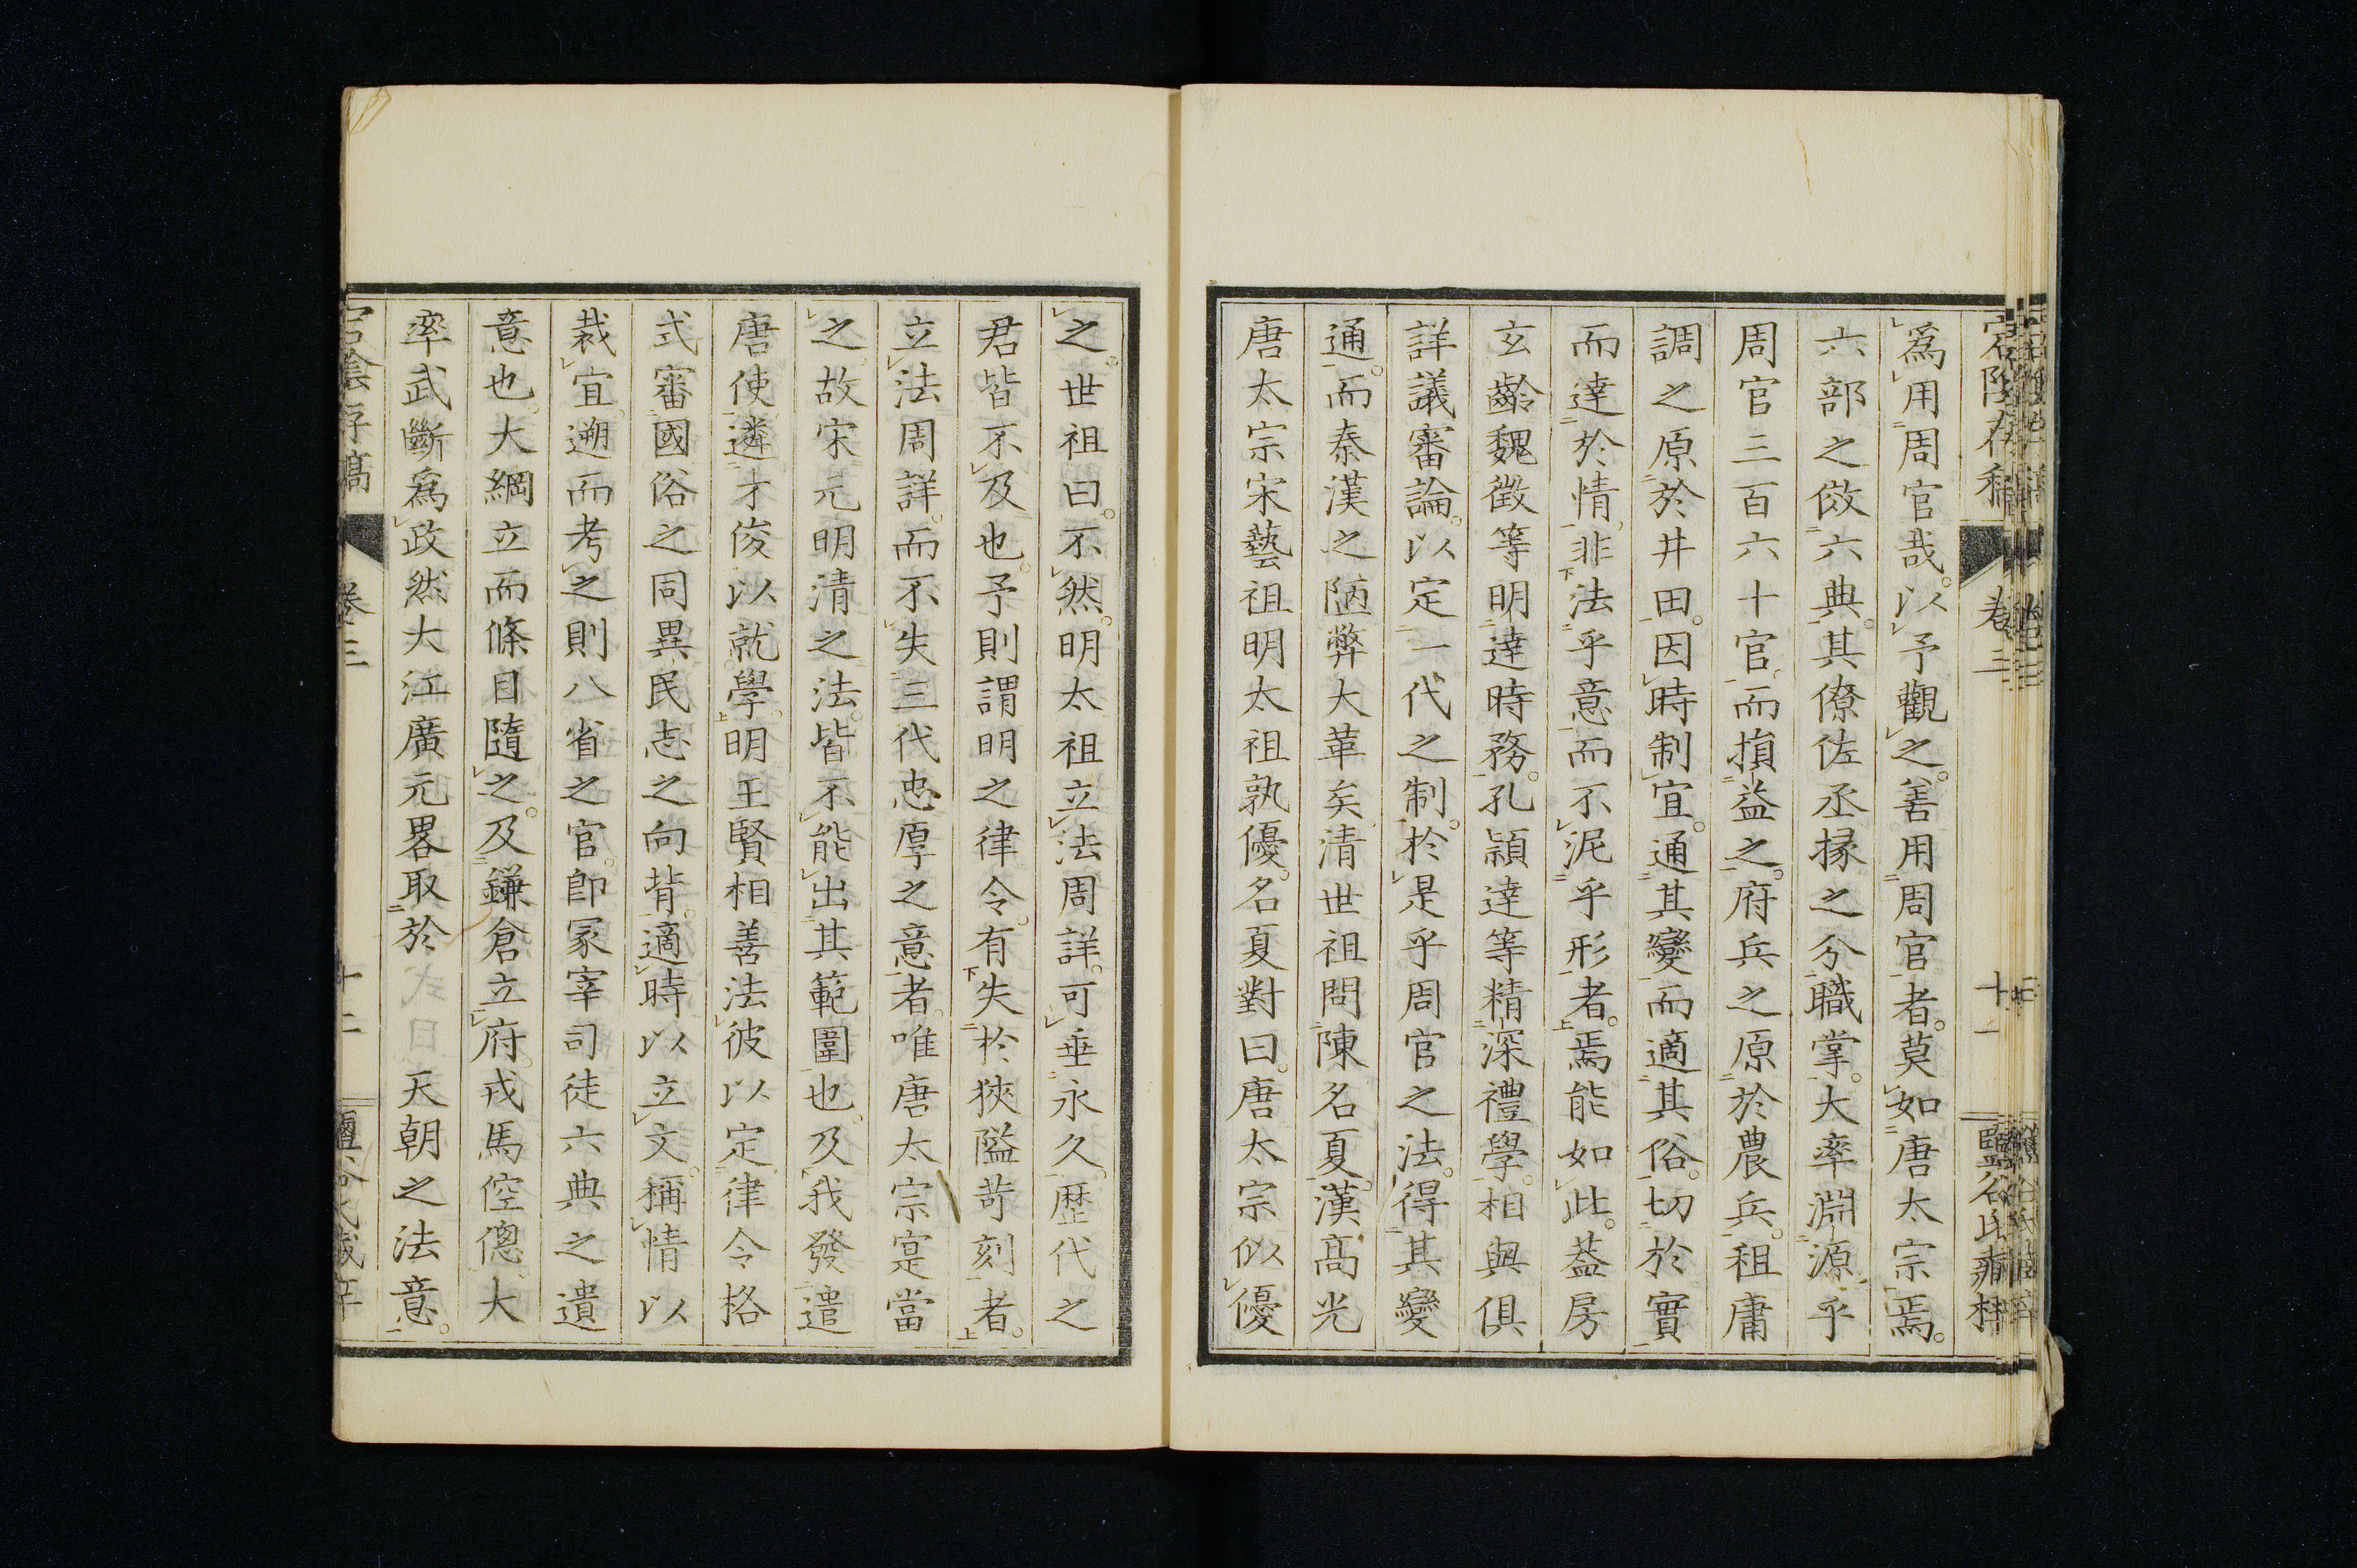 爲用周官哉。以予觀之。善用周官者。莫如唐太宗焉。
六部之倣六典。其僚佐丞掾之分職掌。大率淵源乎
周官三百六十官。而損益之。府兵之原於農兵。租庸
調之原於井田。因時制宜。通其變而適其俗。切於實
而達於情。非法乎意而不泥乎形者。焉能如此。葢房
玄齡魏徵等明達時務。孔頴達等精深禮學。相與俱
詳議審論。以定一代之制。於是乎周官之法。得其變
通。而秦漢之陋弊大革矣清世祖問陳名夏。漢高光
唐太宗宋藝祖明太祖孰優。名夏對曰。唐太宗似優
之。世祖曰。不然。明太祖立法周詳。可垂永久。歴代之
君皆不及也。予則謂明之律令。有失於狹隘苛刻者。
立法周詳。而不失三代忠厚之意者。唯唐太宗寔當
之。故宋元明清之法。皆不能出其範圍也。及我發遣
唐使遴才俊以就學。明王賢相善法彼以定律令格
式審國俗之同異民志之向背。適時以立文。稱情以
裁宜。遡而考之則八省之官。卽冢宰司徒六典之遺
意也。大綱立而條目隨之。及鎌倉立府。戎馬倥傯。大
率武斷爲政然大江廣元畧取於 天朝之法意。
卷三
十二
卷三
十一